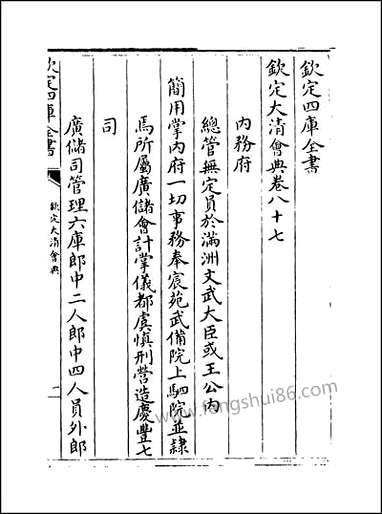 欽定四庫全書
欽定大清會典卷八十七
內務府
總管無定員於滿洲文武大臣或王公內
簡用掌內府一切事務奉宸苑武備院上駟院並隷
焉所屬廣儲會計掌儀都虞慎刑營造慶豐七
司
廣儲司管理六庫郎中二人郎中四人員外郎
欽定四庫全書
欽定大清會典
一
www.fengshui86.com